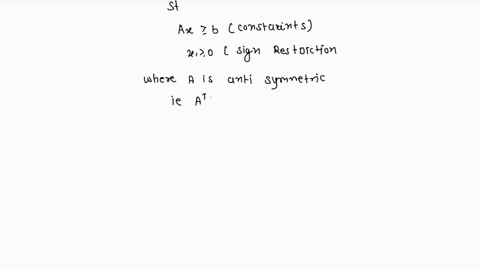 st
Ax ≥ b ( constarints )
x, ≥ 0 ( sign Restorction
where A is anti symmetric
ie Aᵀ